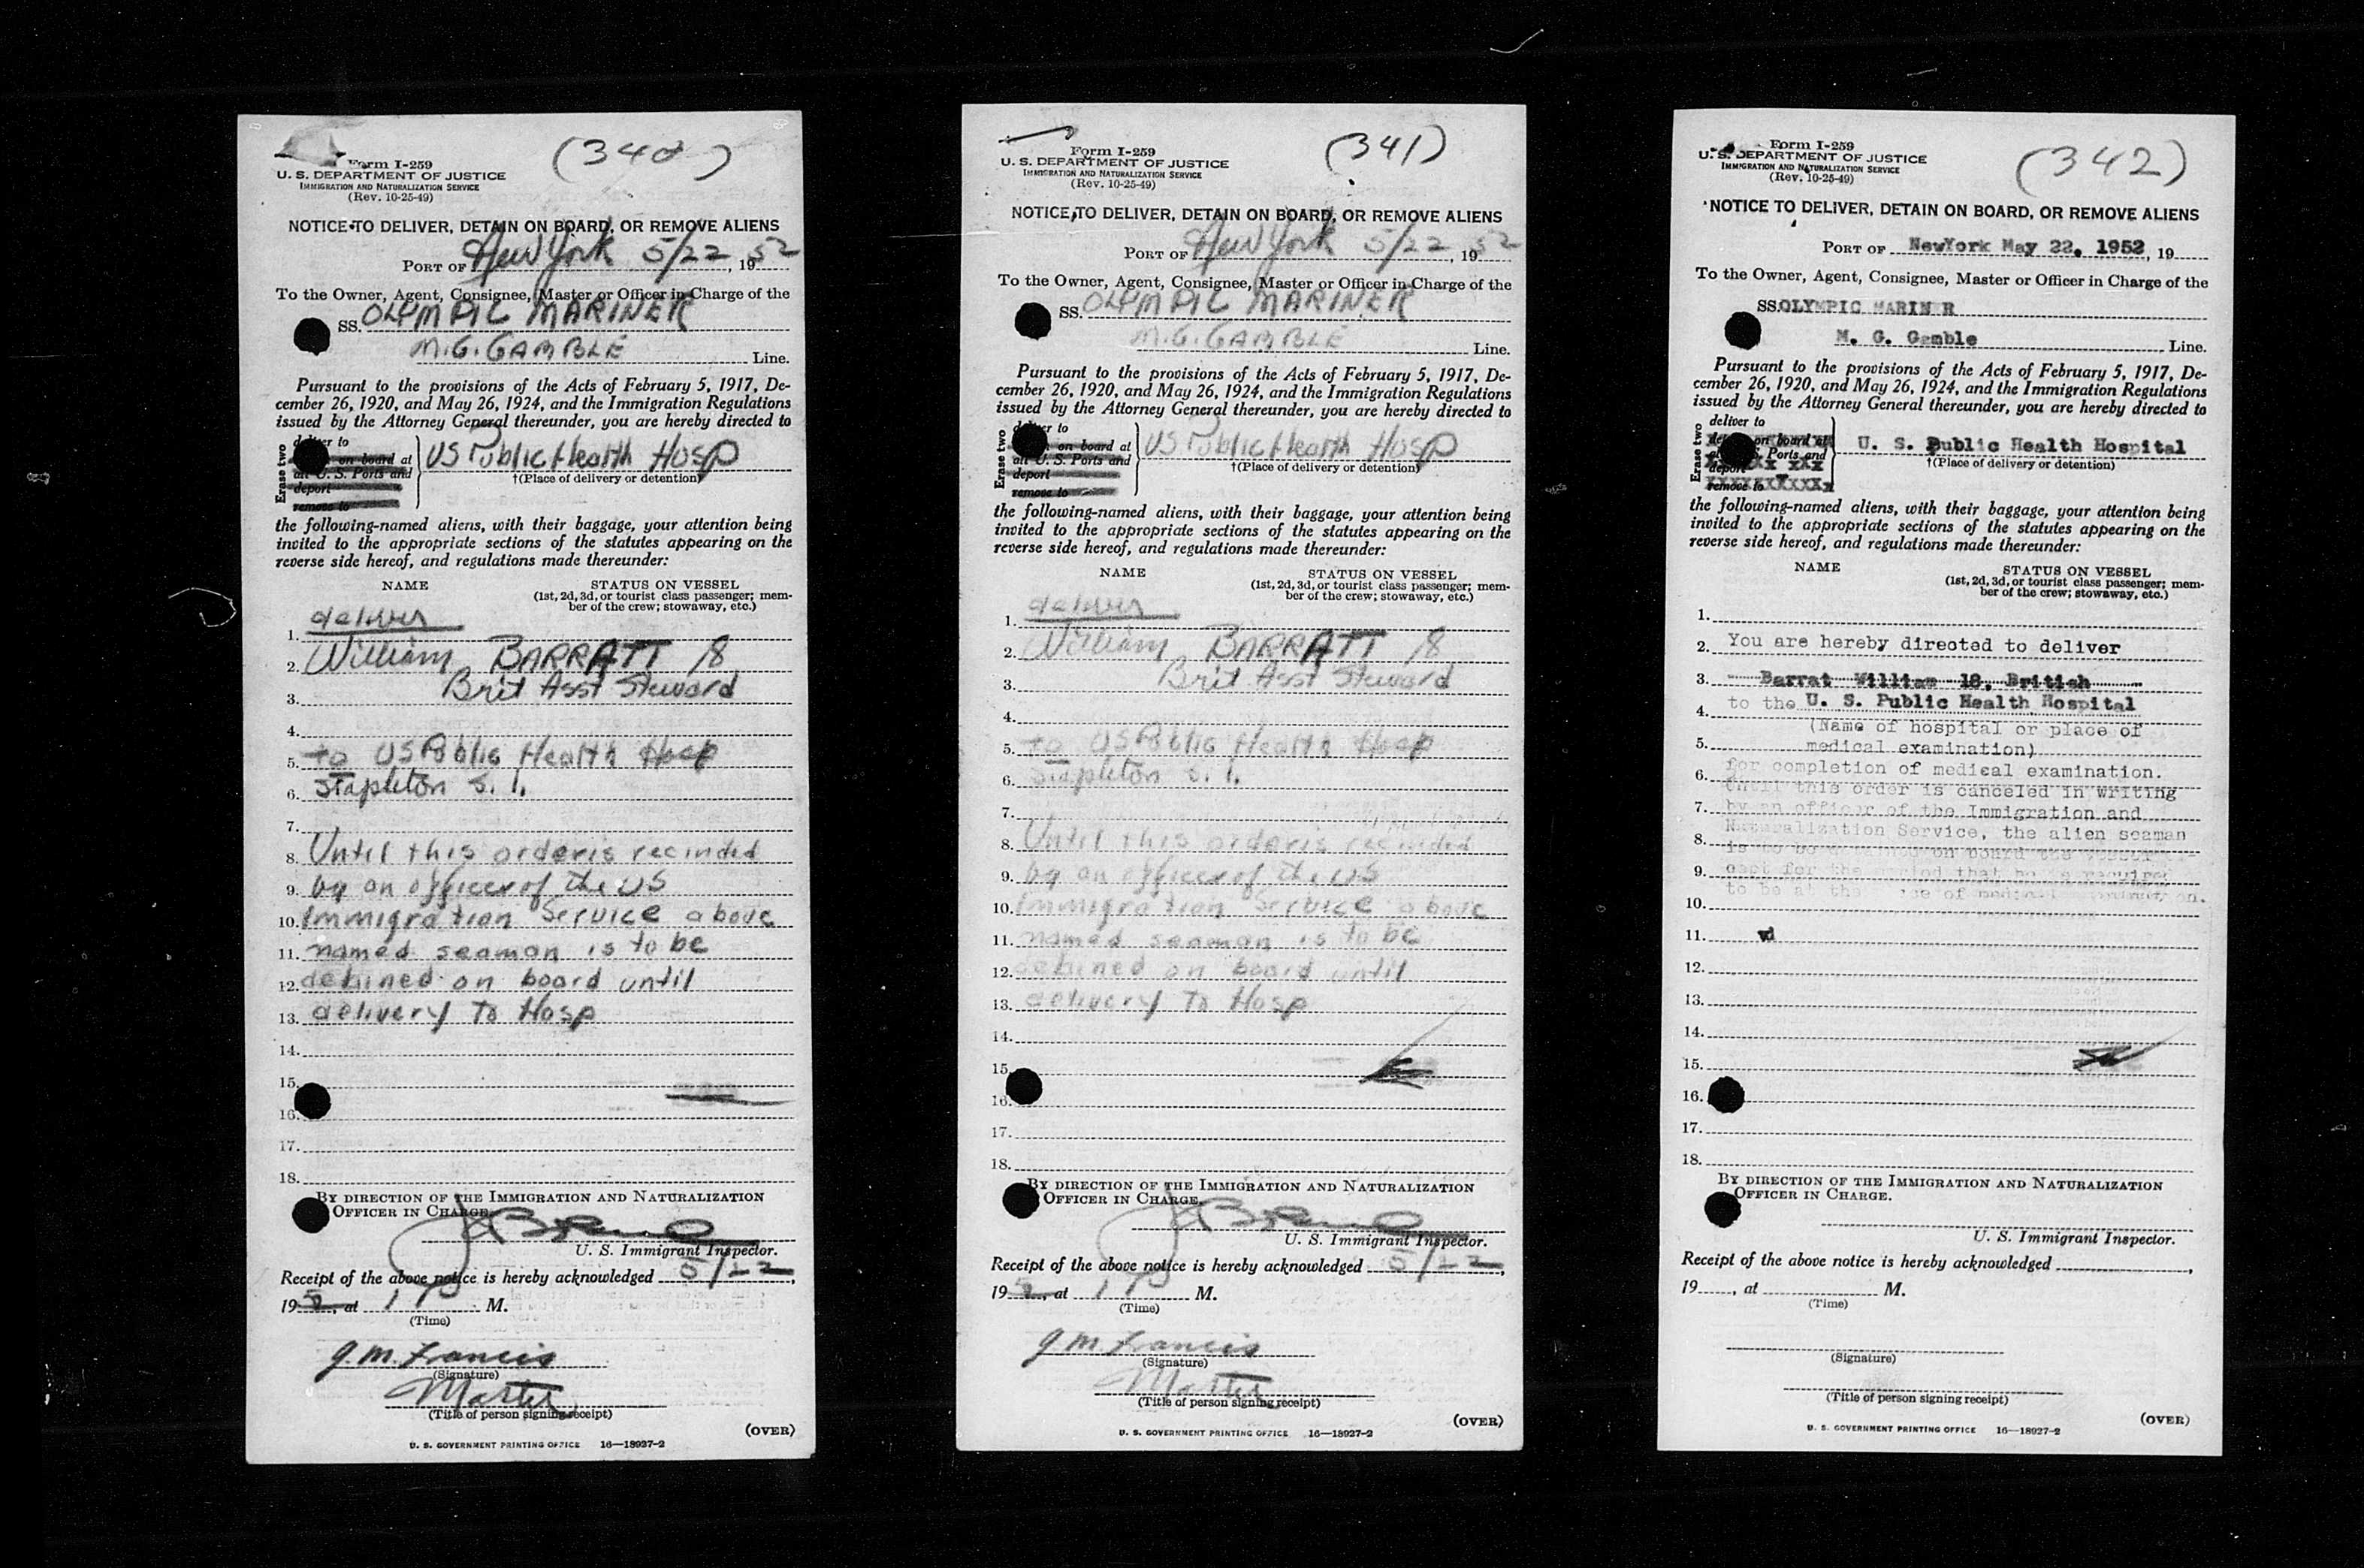 (340)
Form I-259
U. S. DEPARTMENT OF JUSTICE
IMMIGRATION AND NATURALIZATION SERVICE
(Rev. 10-25-49)
NOTICE TO DELIVER, DETAIN ON BOARD, OR REMOVE ALIENS
PORT OF New York 5/22, 1952
To the Owner, Agent, Consignee, Master or Officer in Charge of the
SS. OLYMPIC MARINER
M.G. GAMBLE Line.
Pursuant to the provisions of the Acts of February 5, 1917, De-
cember 26, 1920, and May 26, 1924, and the Immigration Regulations
issued by the Attorney General thereunder, you are hereby directed to
Erase two
deliver to
on board at
all U. S. Ports and
deport
remove to
US Public Health Hosp
†(Place of delivery or detention)
the following-named aliens, with their baggage, your attention being
invited to the appropriate sections of the statutes appearing on the
reverse side hereof, and regulations made thereunder:
NAME STATUS ON VESSEL
(1st, 2d, 3d, or tourist class passenger; mem-
ber of the crew; stowaway, etc.)
1. deliver
2. William BARRATT 18
3. Brit Asst Steward
4.
5. to US Public Health Hosp
6. Stapleton S. I.
7.
8. Until this order is recinded
9. by an officer of the US
10. Immigration Service above
11. named seaman is to be
12. detained on board until
13. delivery to Hosp
14.
15.
16.
17.
18.
BY DIRECTION OF THE IMMIGRATION AND NATURALIZATION
OFFICER IN CHARGE.
U. S. Immigrant Inspector.
Receipt of the above notice is hereby acknowledged 5/22,
195, at 1 P M.
(Time)
J. M. Francis
(Signature)
Master
(Title of person signing receipt)
(OVER)
U. S. GOVERNMENT PRINTING OFFICE 16—18927-2
(341)
Form I-259
U. S. DEPARTMENT OF JUSTICE
IMMIGRATION AND NATURALIZATION SERVICE
(Rev. 10-25-49)
NOTICE TO DELIVER, DETAIN ON BOARD, OR REMOVE ALIENS
PORT OF New York 5/22, 1952
To the Owner, Agent, Consignee, Master or Officer in Charge of the
SS. OLYMPIC MARINER
M.G. GAMBLE Line.
Pursuant to the provisions of the Acts of February 5, 1917, De-
cember 26, 1920, and May 26, 1924, and the Immigration Regulations
issued by the Attorney General thereunder, you are hereby directed to
Erase two
deliver to
on board at
all U. S. Ports and
deport
remove to
US Public Health Hosp
†(Place of delivery or detention)
the following-named aliens, with their baggage, your attention being
invited to the appropriate sections of the statutes appearing on the
reverse side hereof, and regulations made thereunder:
NAME STATUS ON VESSEL
(1st, 2d, 3d, or tourist class passenger; mem-
ber of the crew; stowaway, etc.)
1. deliver
2. William BARRATT 18
3. Brit Asst Steward
4.
5. to US Public Health Hosp
6. Stapleton S. I.
7.
8. Until this order is recinded
9. by an officer of the US
10. Immigration Service above
11. named seaman is to be
12. detained on board until
13. delivery to Hosp
14.
15.
16.
17.
18.
BY DIRECTION OF THE IMMIGRATION AND NATURALIZATION
OFFICER IN CHARGE.
U. S. Immigrant Inspector.
Receipt of the above notice is hereby acknowledged 5/22,
195, at 1 P M.
(Time)
J M. Francis
(Signature)
Master
(Title of person signing receipt)
(OVER)
U. S. GOVERNMENT PRINTING OFFICE 16—18927-2
(342)
Form I-259
U. S. DEPARTMENT OF JUSTICE
IMMIGRATION AND NATURALIZATION SERVICE
(Rev. 10-25-49)
NOTICE TO DELIVER, DETAIN ON BOARD, OR REMOVE ALIENS
PORT OF NewYork May 22, 1952, 19
To the Owner, Agent, Consignee, Master or Officer in Charge of the
SS. OLYMPIC MARINER
M. G. Gamble Line.
Pursuant to the provisions of the Acts of February 5, 1917, De-
cember 26, 1920, and May 26, 1924, and the Immigration Regulations
issued by the Attorney General thereunder, you are hereby directed to
Erase two
deliver to
on board at
U. S. Ports and
deport
remove to
U. S. Public Health Hospital
†(Place of delivery or detention)
the following-named aliens, with their baggage, your attention being
invited to the appropriate sections of the statutes appearing on the
reverse side hereof, and regulations made thereunder:
NAME STATUS ON VESSEL
(1st, 2d, 3d, or tourist class passenger; mem-
ber of the crew; stowaway, etc.)
1.
2. You are hereby directed to deliver
3. Barrat William 18, British
4. to the U. S. Public Health Hospital
(Name of hospital or place of
5. medical examination)
6. for completion of medical examination.
Until this order is canceled in writing
7. by an officer of the Immigration and
Naturalization Service, the alien seaman
8. is to be detained on board the vessel
9. cept for the period that he is required
to be at the of medical examination.
10.
11. vd
12.
13.
14.
15.
16.
17.
18.
BY DIRECTION OF THE IMMIGRATION AND NATURALIZATION
OFFICER IN CHARGE.
U. S. Immigrant Inspector.
Receipt of the above notice is hereby acknowledged
19, at M.
(Time)
(Signature)
(Title of person signing receipt)
(OVER)
U. S. GOVERNMENT PRINTING OFFICE 16—18927-2